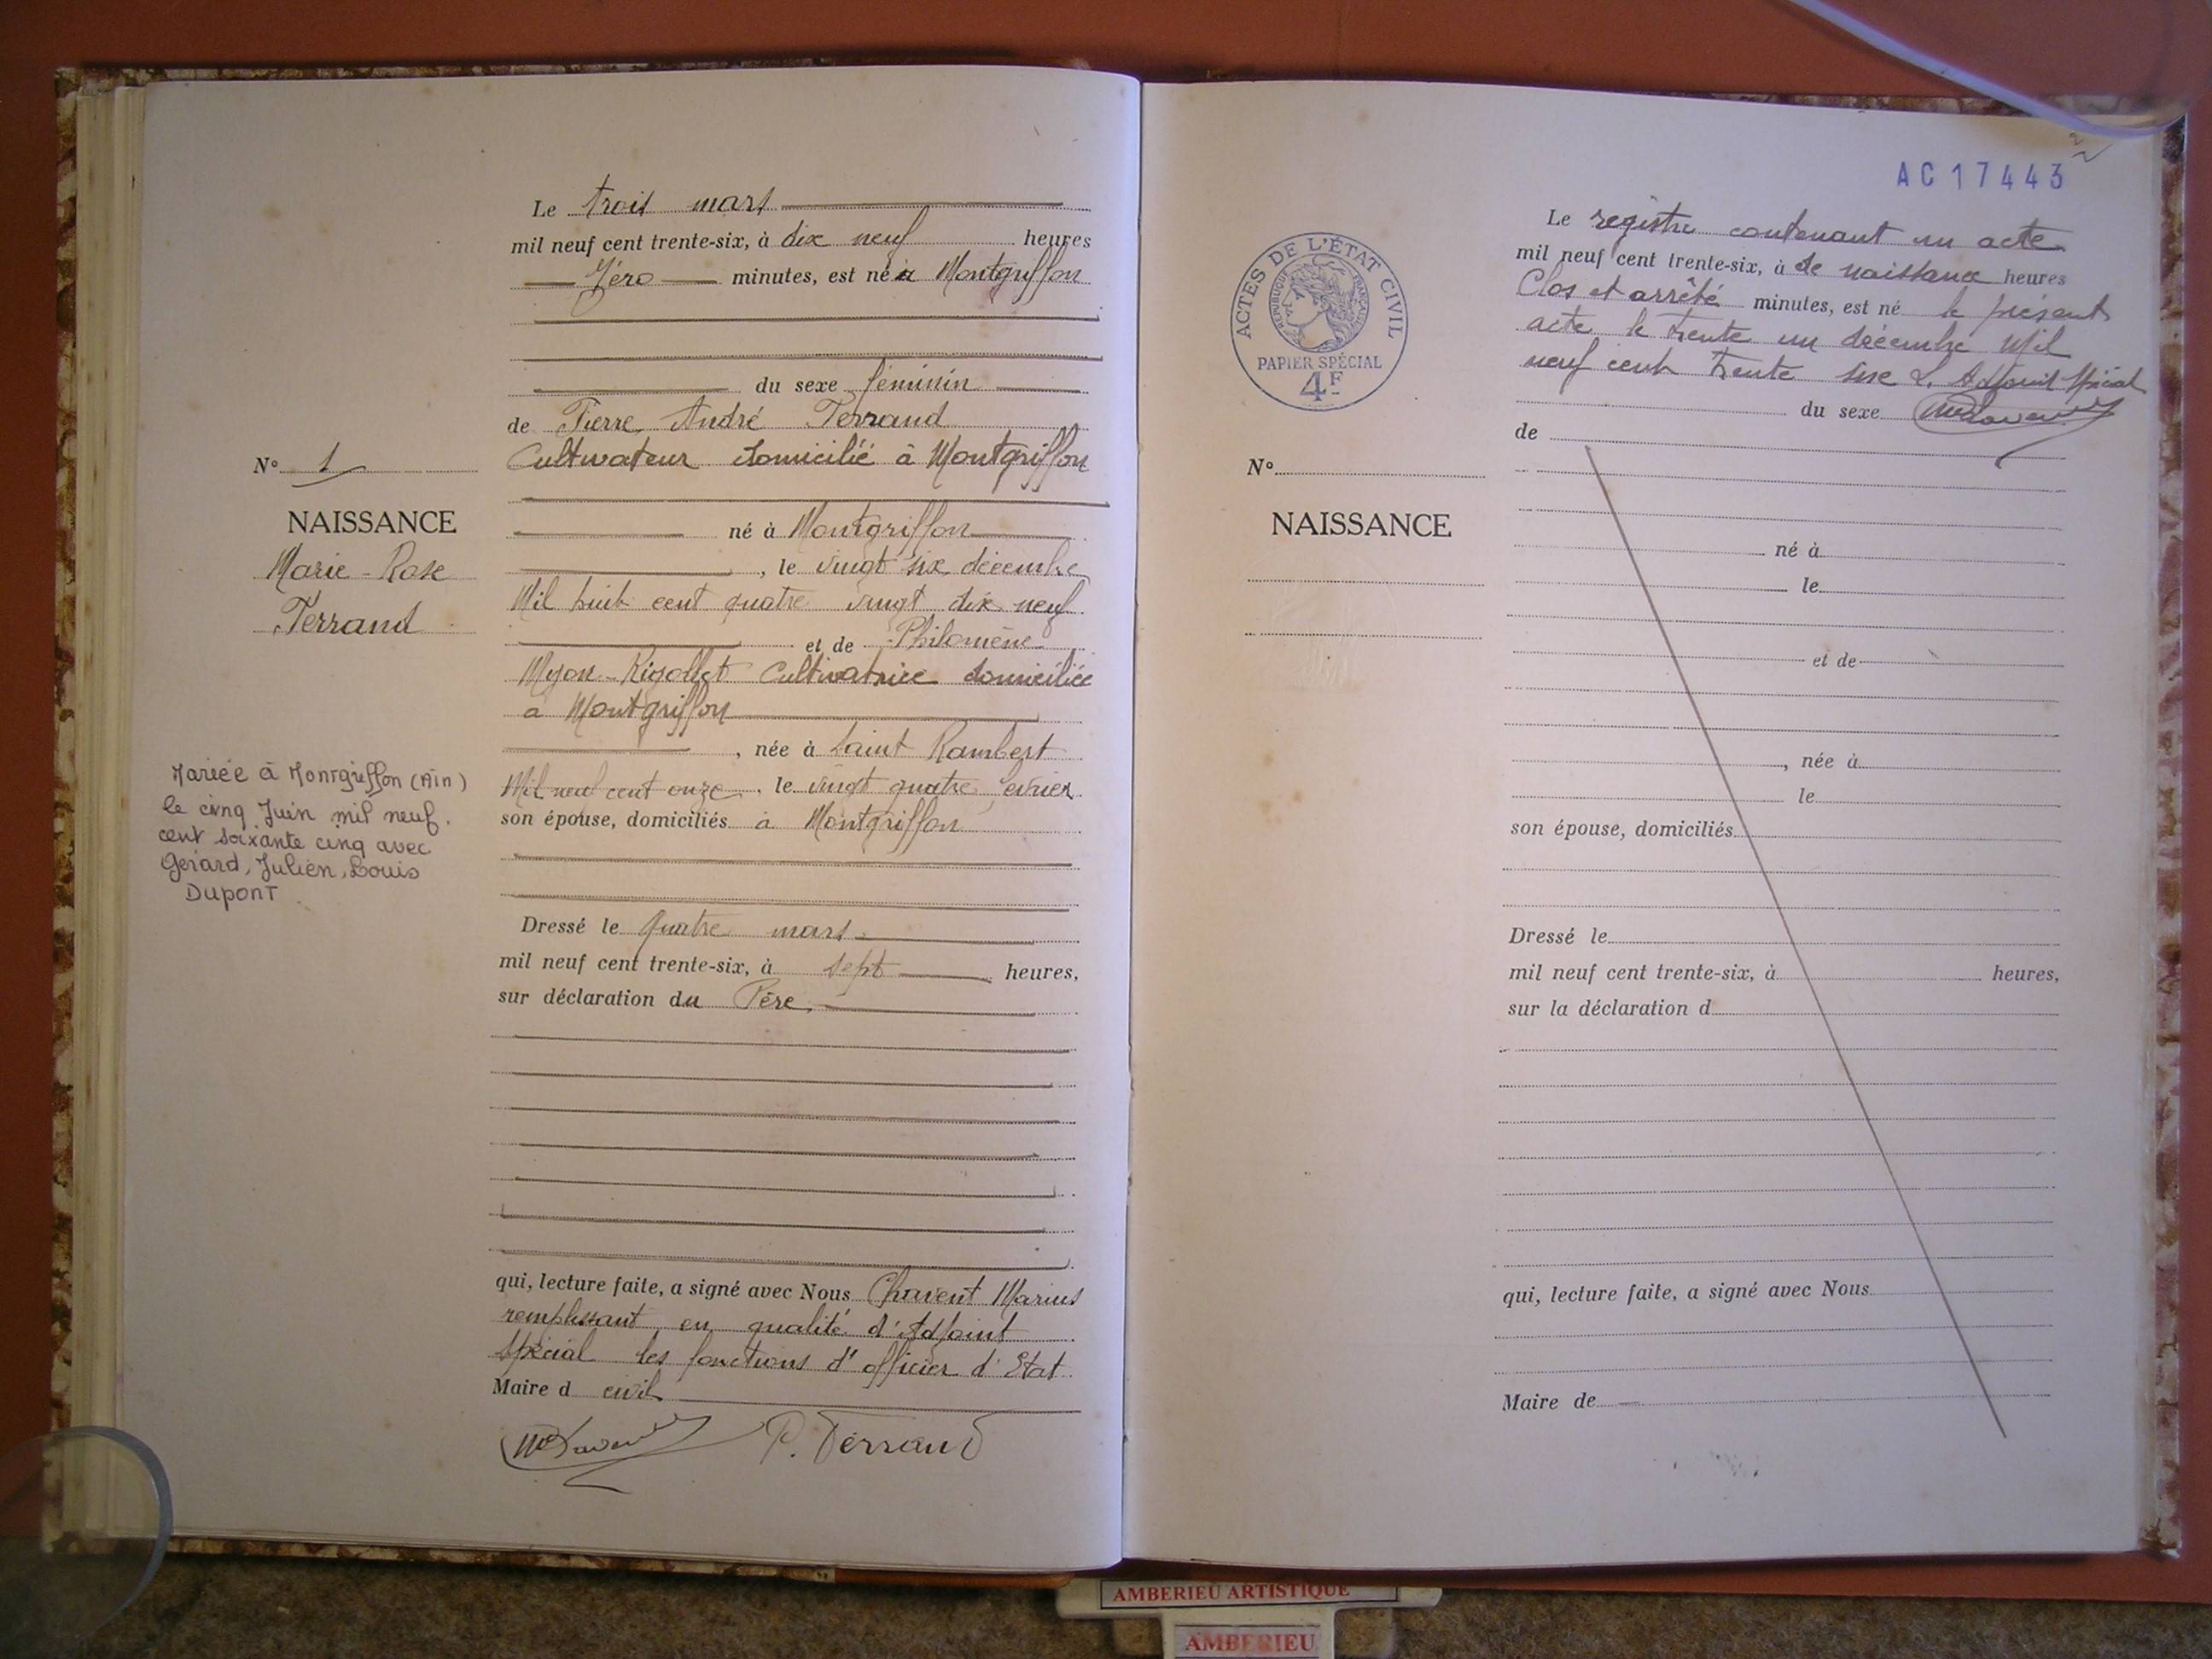 Le trois mars
mil neuf cent trente-six, à dix neuf heures
Zéro minutes, est née à Montgriffon
du sexe féminin
de Pierre André Ferrand
Cultivateur domicilié à Montgriffon
N° 1
NAISSANCE
Marie-Rose
Ferrand
né à Montgriffon
, le vingt six décembre
Mil huit cent quatre vingt dix neuf
et de Philomène
Myon-Rigollet Cultivatrice domiciliée
à Montgriffon
, née à Saint Rambert
Mil neuf cent onze, le vingt quatre février
son épouse, domiciliés à Montgriffon
Mariée à Montgriffon (Ain)
le cinq Juin mil neuf
cent soixante cinq avec
Gérard, Julien, Louis
Dupont
Dressé le quatre mars
mil neuf cent trente-six, à sept heures,
sur déclaration du Père
qui, lecture faite, a signé avec Nous Chavent Marius
remplissant en qualité d'Adjoint
Spécial les fonctions d'officier d'Etat
Maire d civil
P. Ferrand
AC17443
2
ACTES DE L'ÉTAT CIVIL
RÉPUBLIQUE FRANÇAISE
PAPIER SPÉCIAL
4F
Le registre contenant un acte
mil neuf cent trente-six, à de naissance heures
Clos et arrêté minutes, est né le présent
acte le trente un décembre Mil
neuf cent trente six L'Adjoint Spécial
du sexe
de
N°
NAISSANCE
né à
le
et de
, née à
le
son épouse, domiciliés
Dressé le
mil neuf cent trente-six, à heures,
sur la déclaration d
qui, lecture faite, a signé avec Nous
Maire de
AMBERIEU ARTISTIQUE
AMBERIEU